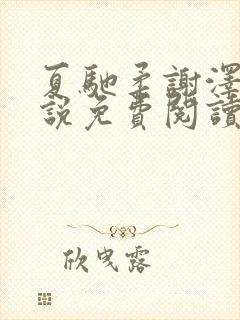 夏馳柔謝澤
說免費閱讀
欣曳露